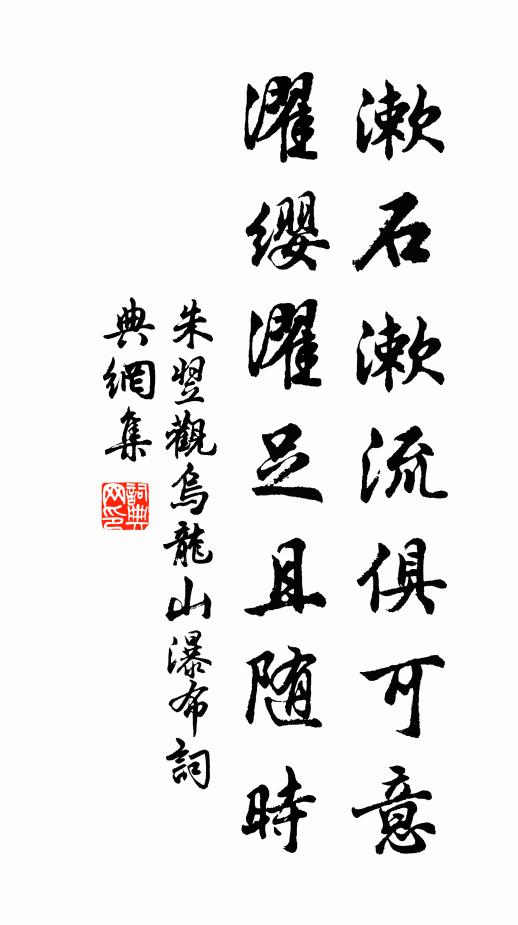 漱石漱流俱可意
濯缨濯足且随時
朱翌觀烏龍山瀑布詞
典網集
詞典网印